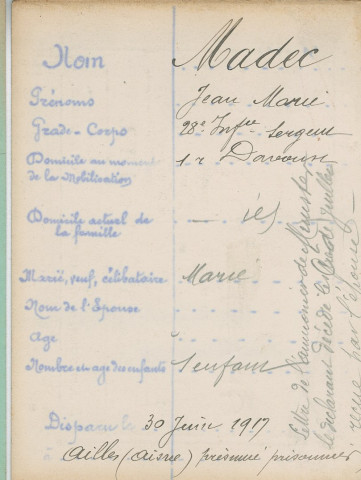 Nom Madec
Prénoms Jean Marie
Grade-Corps 28e Infie Sergent
Domicile au moment 1 r Davoust
de la Mobilisation
Domicile actuel de — id
la famille
Marié, veuf, célibataire Marié
Nom de l'Epouse
Age
Nombre et age des enfants 1 enfant
Disparu le 30 Juin 1917
à Ailles (Aisne) présumé prisonnier
Lettre de l'aumonier de
le déclarant décédé le